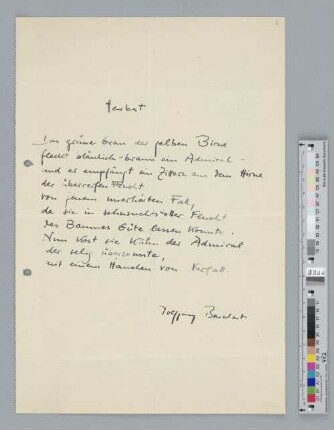 Herbst
Das grüne Grau der gelben Birne
fleckt bläulich-braun ein Admiral -
und es empfängt ein Zittern aus dem Hirne
der überreifen Frucht
von jenem unerhörten Fall,
da sie in sehnsuchtsvoller Flucht
des Baumes Güte lassen konnte.
Nun küsst sie kühn der Admiral
der selig übersonnte,
mit einem Hauche von Verfall.
Wolfgang